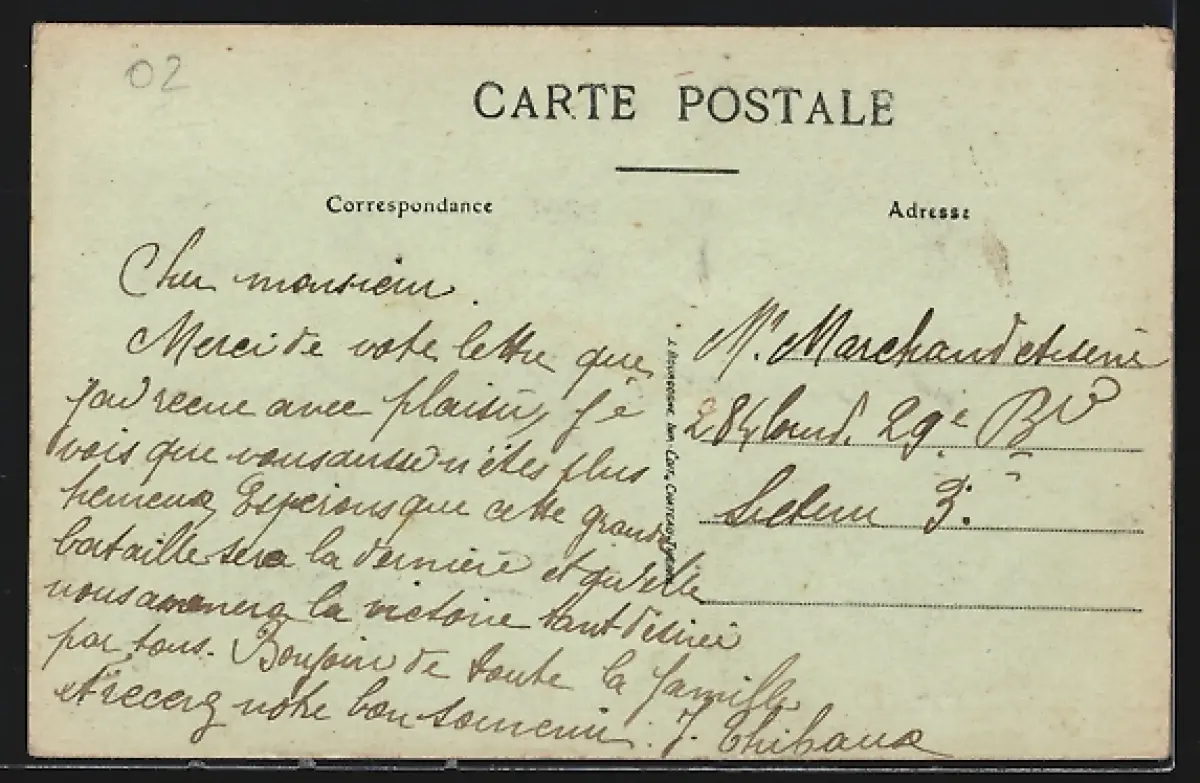 02
CARTE POSTALE
Correspondance
Adresse
Cher monsieur.
Merci de votre lettre que
j'ai recue avec plaisir, je
vois que vous aussi n'êtes plus
heureux, Espérons que cette grande
bataille sera la dernière et qu'elle
nous amenera la victoire tant désirée
par tous. Bonjour de toute la famille
et recevez notre bon souvenir. J. Thibaux
Mr. Marchand
284 29e
3.